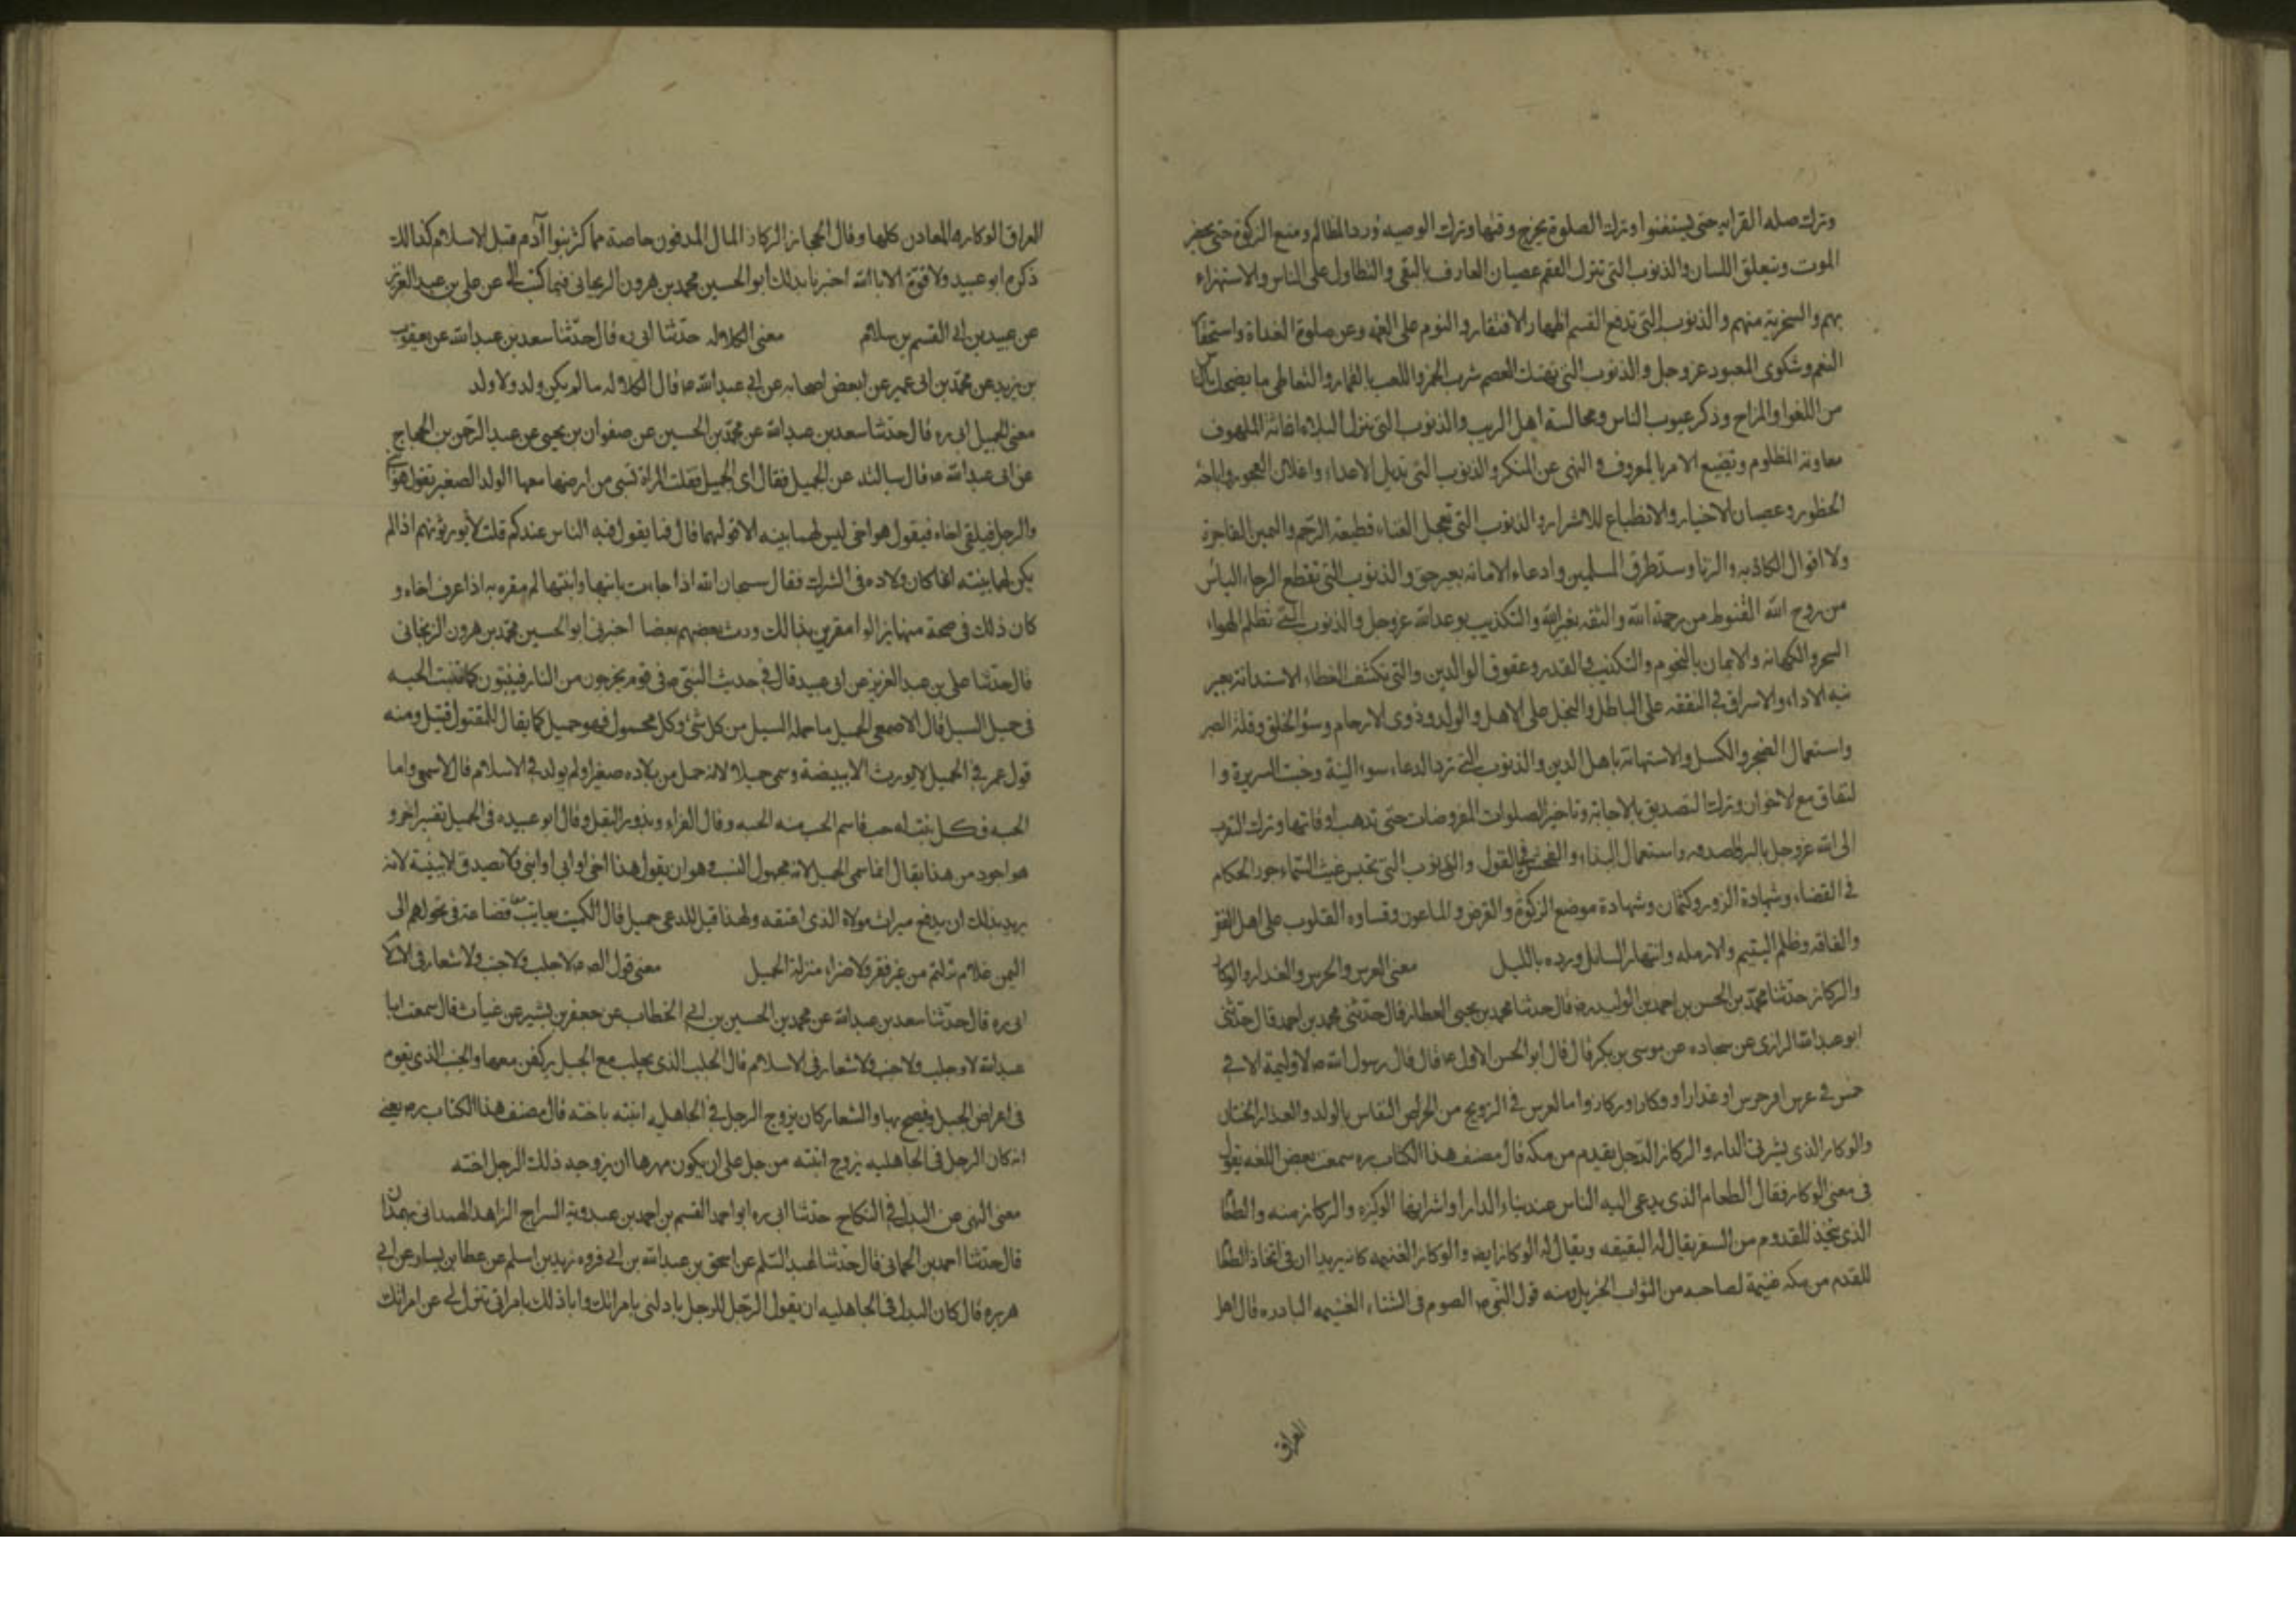 وترك صله القرابه حتى يستغنوا وترك الصلوة يخرج وقتها وترك الوصيه ورد المظالم ومنع الزكوة حتى يحضر
الموت وتعلق اللسان والذنوب التى تنزل النقم عصيان العارف بالبقى والتطاول على الناس والاستهزاء
بهم والسخرية منهم والذنوب التى تدفع القسم اظهار الافتقار والنوم على العتمه وعن صلوة الغداة واستحقا
النعم وشكوى المعبود عز وجل والذنوب التى تهتك العصم شرب الخمر واللعب بالقمار والتعاطى ما يضحك الناس
من اللغوا والمزاح وذكر عيوب الناس ومجالسة اهل الريب والذنوب التى تنزل البلاء اغاثة الملهوف
معاونة المظلوم وتضيع الامر بالمعروف والنهى عن المنكر والذنوب التى تديل الاعداء واعلان الفجور واباحة
الحظور وعصيان الاخيار والانطباع للاشرار والذنوب التى تعجل الفناء قطيعة الرحم واليمين الفاجرة
ولا اقوال الكاذبه والزنا وسد طرق المسلمين وادعاء الامانه بغير حق والذنوب التى تقطع الرجاء الياس
من روح الله القنوط من رحمة الله والثقه بغير الله والتكذيب بوعد الله عز وجل والذنوب التى تظلم الهواء
السحر والكهانه والايمان بالنجوم والتكذيب والقدر وعقوق الوالدين والتى تكشف الغطاء الاستدانة بغير
نية الاداء والاسراق فى النفقه على الباطل والبخل على الاهل والولد وذوى الارحام وسؤ الخلق وقلة الصبر
واستعمال الضجر والكسل والاستهانة باهل الدين والذنوب التى ترد الدعاء سوء النية وخبث السريرة وا
لنفاق مع لاخوان وترك التصديق بالاجابة وتاخير الصلوات المفروضات حتى تذهب اوقاتها وترك التقرب
الى الله عز وجل بالبر والصدقه واستعمال البذاء والفحش فى القول والذنوب التى تحبس غيث السماء جور الحكام
فى القضاء وشهادة الزور وكتمان وشهادة موضع الزكوة والقرض والماعون وقساوه القلوب على اهل الفقر
والفاقه وظلم اليتيم والارمله وانتهار السايل ورده بالليل معنى العرس والخرس والعذار والوكار
والركاز حدثنا محمد بن الحسن بن احمد بن الوليد ره قال حدثنا محمد بن يحيى العطار قال حدثنى محمد بن احمد قال حدثنى
ابو عبد الله الرازى عن سجاده عن موسى بن بكر قال قال ابو الحسن الاول ع قال قال رسول الله ص لا وليمة الا فى
خمس فى عرس او خرس او عذار او وكار او ركاز واما العرس فى الزويج من الخراس النفاس بالولد والعذار الختان
والوكار الذى يشرى الدار والركاز الرجل يقدم من مكه قال مصنف هذا الكتاب ره سمعت بعض اللغه يقول
فى معنى الوكار فقال الطعام الذى يدعى اليه الناس عند بناء الدار او اشرايها الوكيره والركاز منه والطعا
الذى يتخذ للقدوم من السفر يقال له النقيعه ويقال له الوكاز ايض والوكاز الغنيمه كانه يريد ان فى اتخاذ الطعا
للقدم من مكه غنيمة لصاحبه من الثواب الجزيل ومنه قول النبى ص الصوم فى الشتاء الغنيمه البارده قال اهل
العراق
العراق الوكاره المعادن كلها وقال الحجاز الركاز المال المدفون خاصة مما كنز بنوا آدم قبل الاسلام كذالك
ذكره ابو عبيد ولا قوة الا بالله اخبرنا بذلك ابو الحسين محمد بن هرون الزنجانى فيما كتب الى عن على بن عبد العزيز
عن عبيد بن ابى القسم بن سلام معنى الكلاله حدثنا ابى ره قال حدثنا سعد بن عبد الله عن يعقوب
بن يزيد عن محمد بن ابى عمير عن بعض اصحابه عن ابى عبد الله ع قال الكلاله ما لم يكن ولد ولا ولد
معنى الحميل ابى ره قال حدثنا سعد بن عبد الله عن محمد بن الحسين عن صفوان بن يحيى عن عبد الرحمن بن الحجاج
عن ابى عبد الله ع قال سالته عن الحميل فقال اى الحميل فقلت المراة تسبى من ارضها معها الولد الصغير تقول هو ابنى
والرجل فيلقى اخاه فيقول هو اخى ليس لهما بينه الا قولهما قال فما يقول فيه الناس عندكم قلت لا يورثونهم اذا لم
يكن لهما بينته انما كان ولاده فى الشرك فقال سبحان الله اذا جاءت بابنها وابنتها لم مقره به اذا عرف اخاه و
كان ذلك فى صحة منهما يزالوا مقرين بذالك ورث بعضهم بعضا اخبرنى ابو الحسين محمد بن هرون الزنجانى
قال حدثنا على بن عبد العزيز عن ابى عبيد قال فى حديث النبى ص فى قوم يخرجون من النار فينبتون كما تنبت الحبه
فى حميل السيل قال الاصمعى الحميل ما حمله السيل من كل شئ وكل محمول فهو حميل كما يقال للمقتول قتيل ومنه
قول عمر فى الحميل لا يورث الا ببيضة وسمى حميلا لانه حمل من بلاده صغيرا ولم يولد فى الاسلام قال الاسمعى واما
الحبه فكل نبت له حب فاسم الحب منه الحبه وقال الفراء وبذور البقل وقال ابو عبيده فى الحميل تفسير اخر و
هو اجود من هذا يقال انما سمى الحميل لانه مجهول النسب وهو ان يقول هذا اخى او ابى او ابنى فلا يصدق لا ببينة لانه
يريد بذلك ان يدفع ميراث مولاه الذى اعتقه ولهذا قيل للدعى حميل قال الكميت يعاتب قضاعة فى تحولهم الى
اليمن علام نزلتم من غير فقر ولا ضراء منزلة الحميل معنى قول الص ع لا جلب ولا جنب ولا شعار فى الاسلا
ابى ره قال حدثنا سعد بن عبد الله عن محمد بن الحسين بن ابى الخطاب عن جعفر بن بشير عن غياث قال سمعت ابا
عبد الله لا وجلب ولا جنب ولا شعار فى الاسلام قال الجلب الذى يجلب مع الجبل يركض معها والجنب الذى يقوم
فى اعراض الجبل فيصح بها والشعار كان يزوج الرجل فى الجاهليه ابنته باخته قال مصنف هذا الكتاب ره يعنى
انه كان الرجل فى الجاهليه يزوج ابنته من رجل على ان يكون مهرها ان يزوجه ذلك الرجل اخته
معنى النهى عن البدل فى النكاح حدثنا ابى ره ابو احمد القسم بن احمد بن عبدويه السراج الزاهد الهمدانى بهمدان
قال حدثنا احمد بن الحمانى قال حدثنا عبد السلم عن اسحق بن عبد الله بن ابى فروه زيد بن اسلم عن عطا بن يسار عن ابى
هريره قال كان البدل فى الجاهليه ان يقول الرجل للرجل بادلنى بامراتك واباذلك بامراتى تنزل لى عن امراتك